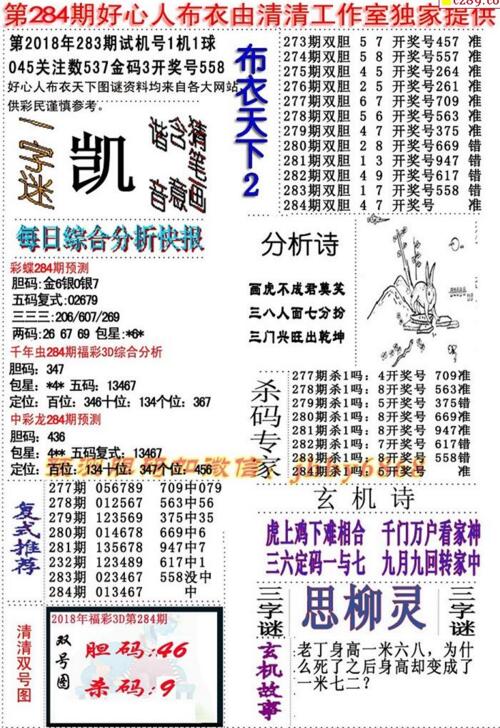 cz89.cc
第284期好心人布衣由清清工作室独家提供
第2018年283期试机号1机1球
045关注数537金码3开奖号558
好心人布衣天下图谜资料均来自各大网站
供彩民谨慎参考。
一字谜
凯
猜笔画
含意
谐音
每日综合分析快报
彩蝶284期预测
胆码:金6银0银7
五码复式:02679
三三三:206/607/269
两码:26 67 69 包星:*6*
千年虫284期福彩3D综合分析
胆码: 347
包星: *4* 五码: 13467
定位: 百位: 346十位: 134个位: 367
中彩龙284期预测
胆码: 436
包星: 4** 五码复式: 13467
定位: 百位: 134十位: 347个位: 456
布衣天下2
273期双胆 5 7 开奖号457 准
274期双胆 5 8 开奖号557 准
275期双胆 4 5 开奖号264 准
276期双胆 2 5 开奖号261 准
277期双胆 6 7 开奖号709 准
278期双胆 5 6 开奖号563 准
279期双胆 4 7 开奖号375 准
280期双胆 2 8 开奖号669 错
281期双胆 1 3 开奖号947 错
282期双胆 4 9 开奖号617 错
283期双胆 1 7 开奖号558 错
284期双胆 4 7 开奖号 准
分析诗
画虎不成君莫笑
三八人面七分扮
三门兴旺出乾坤
杀码专家
277期杀1吗: 4开奖号 709准
278期杀1吗: 8开奖号 563准
279期杀1吗: 5开奖号 375错
280期杀1吗: 8开奖号 669准
281期杀1吗: 8开奖号 947准
282期杀1吗: 7开奖号 617错
283期杀1吗: 8开奖号 558错
284期杀1吗: 5开奖号 准
复式推荐
277期 056789 709中079
278期 012567 563中56
279期 123569 375中35
280期 014678 669中6
281期 135678 947中7
282期 123489 617中1
283期 023467 558没中
284期 013467 中
玄机诗
虎上鸡下难相合 千门万户看家神
三六定码一与七 九月九回转家中
清清双号图
2018年福彩3D第284期
双号图
胆码:46
杀码:9
三字谜
思柳灵
三字谜
玄机故事
老丁身高一米六八，为什
么死了之后身高却变成了
一米七二?